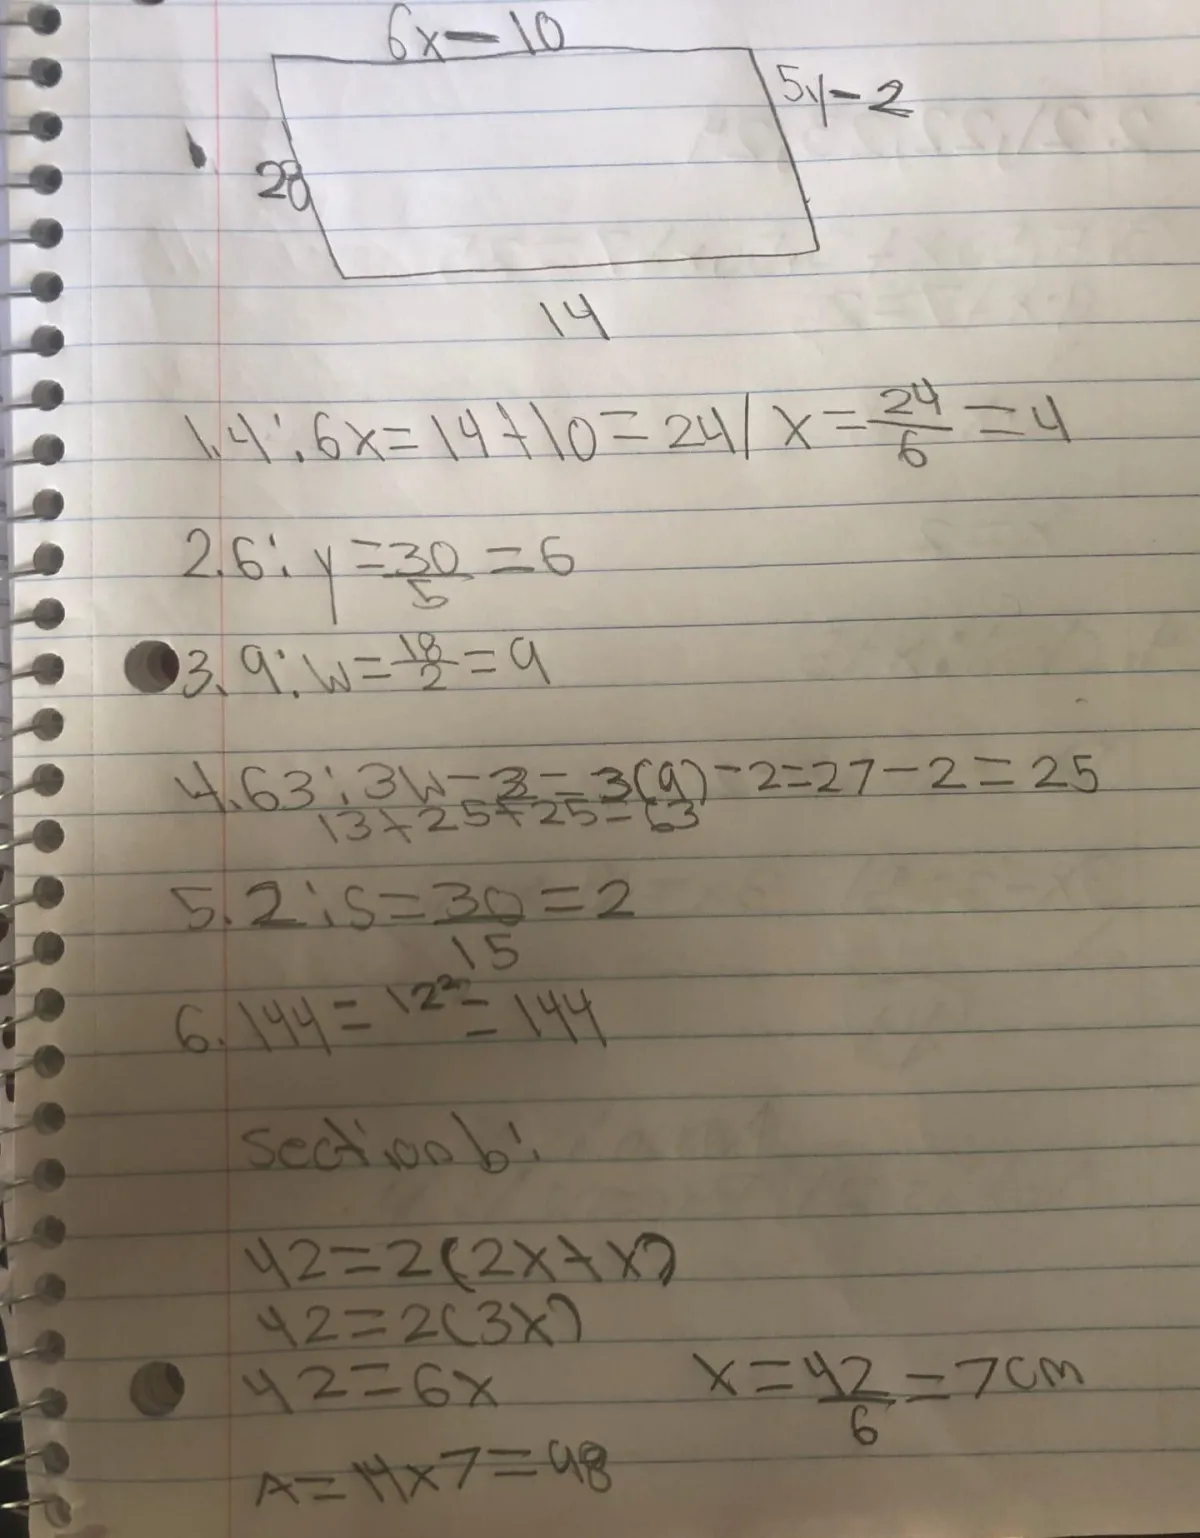 6x-10
5y-2
28
14
1.4: 6x=14+10=24/ x=24/6=4
2.6: y=30/5=6
3.9: w=18/2=9
4.63: 3w-2=3(9)-2=27-2=25
13+25+25=63
5.2: s=30/15=2
6.144=12²=144
Section b:
42=2(2x+x)
42=2(3x)
42=6x x=42/6=7cm
A=14x7=98